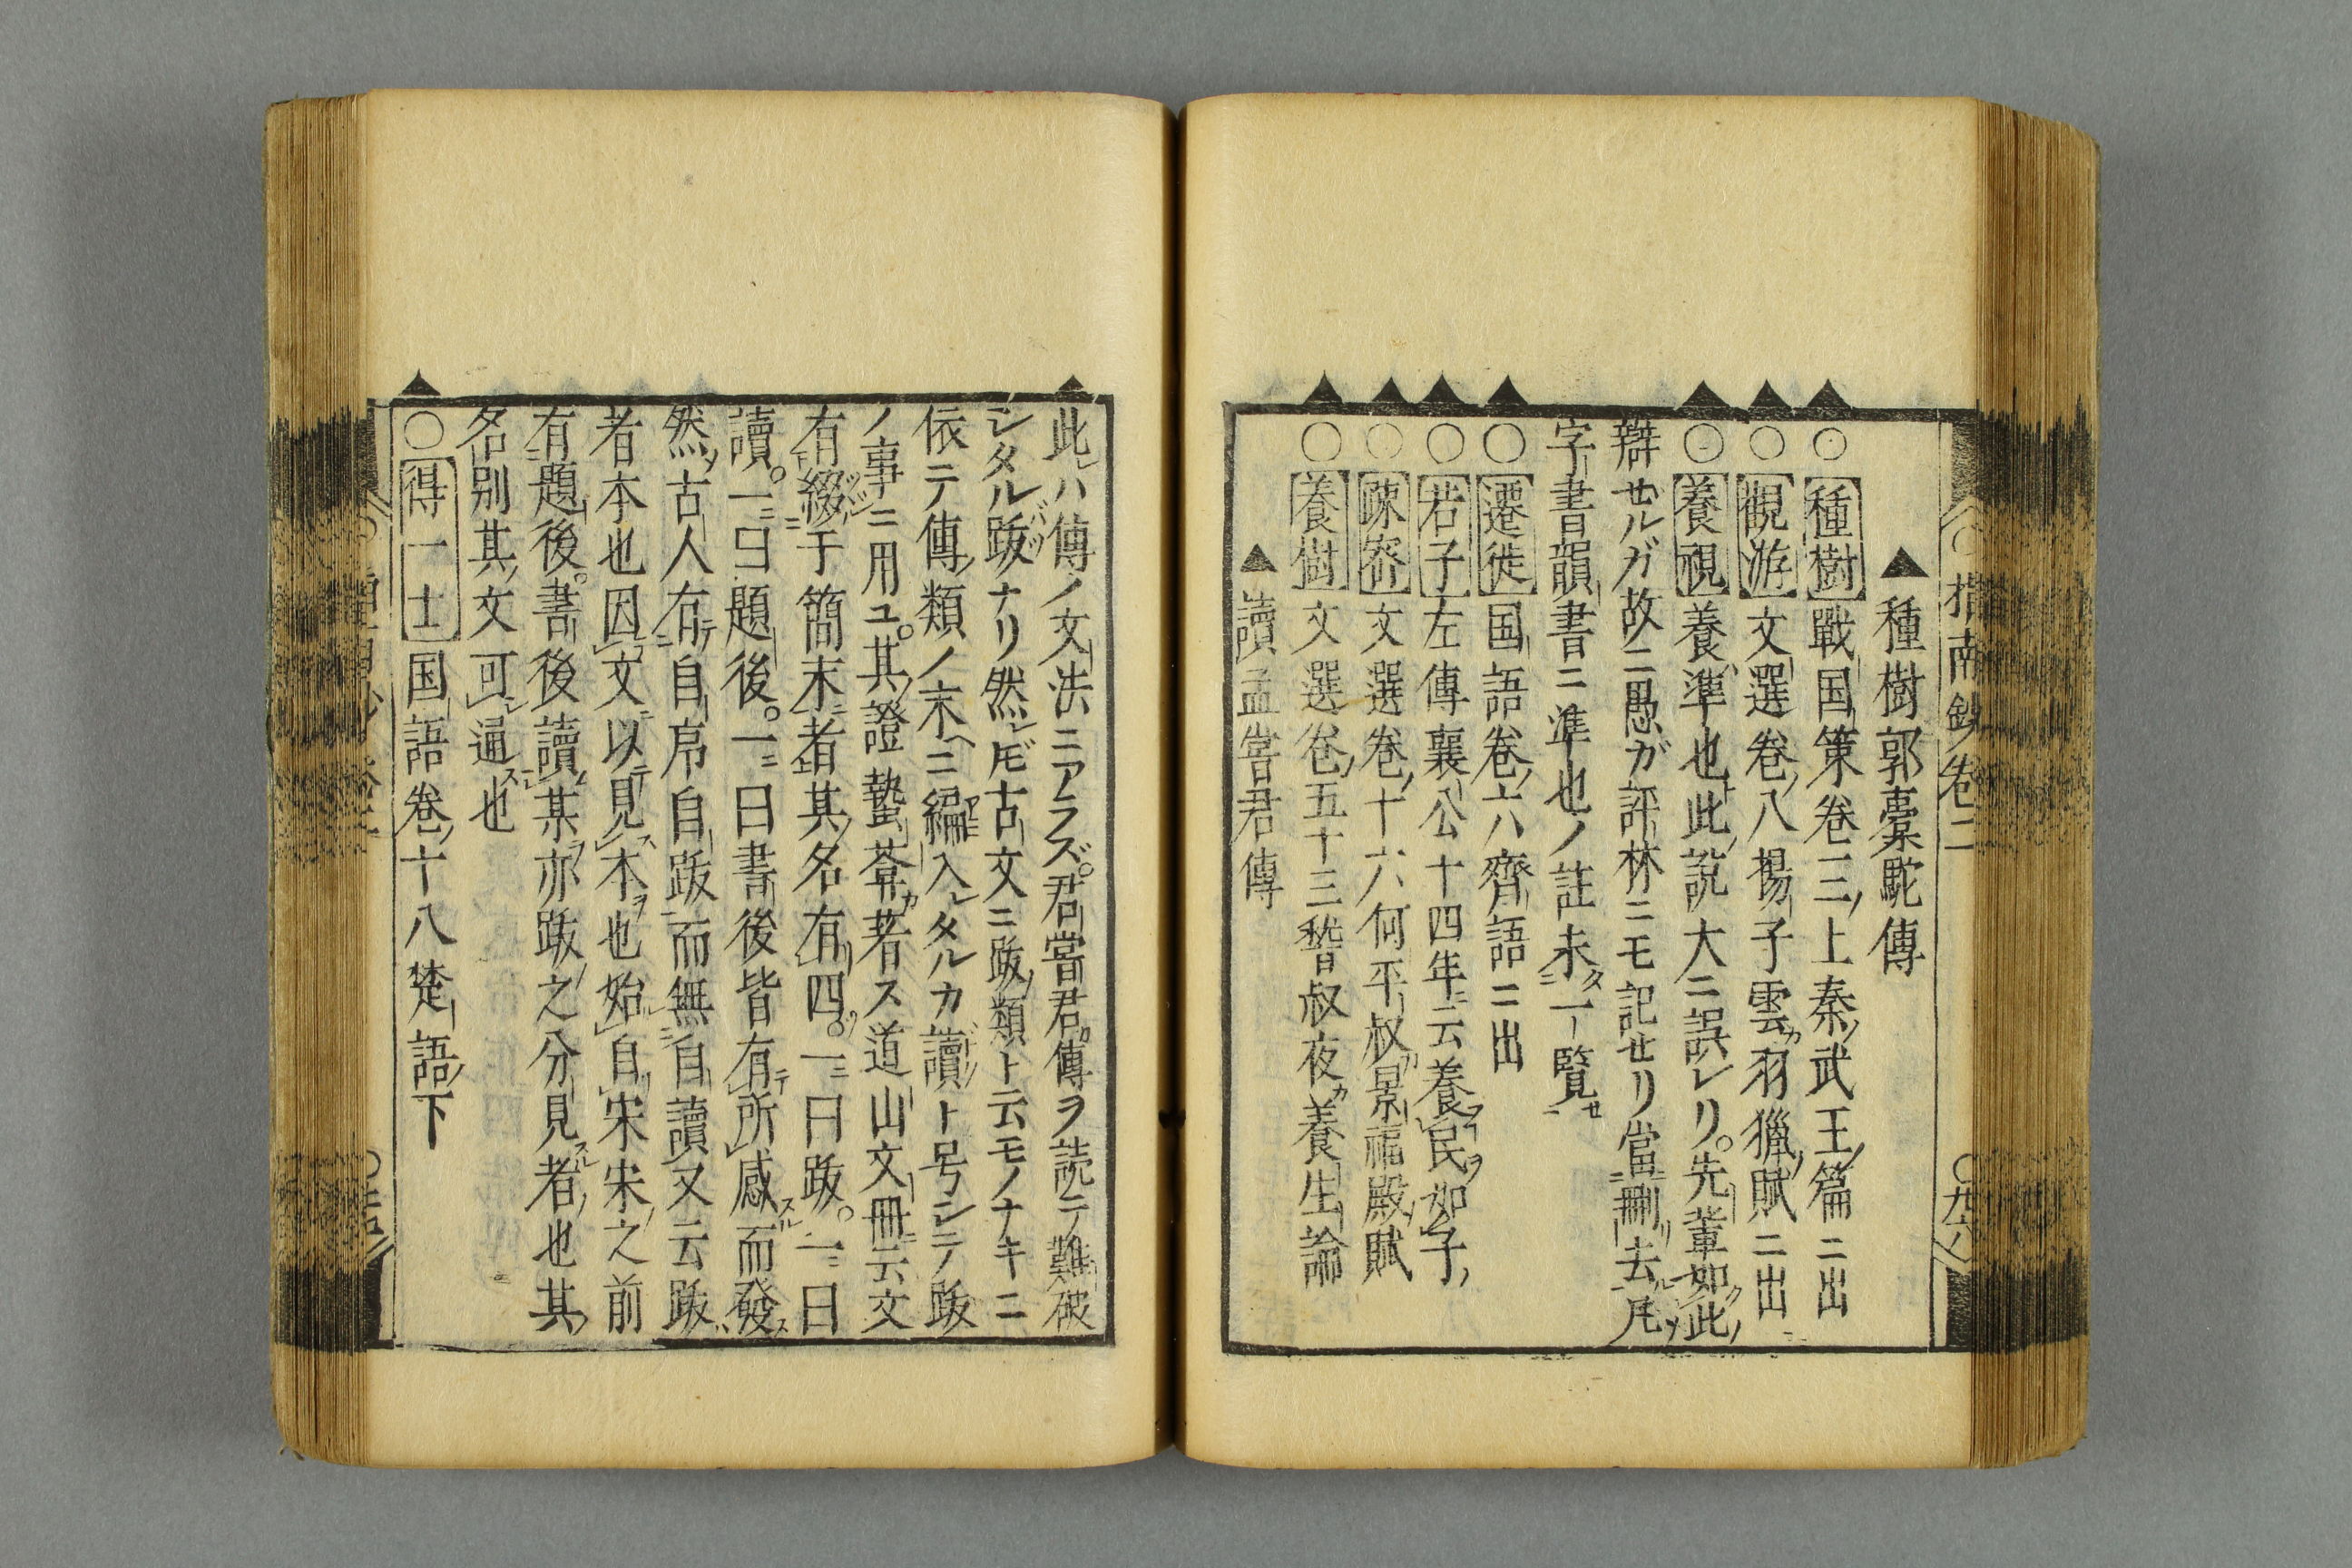 指南鈔卷二
▲種樹郭橐駝傳
○種樹 戰国策卷三上秦武王篇ニ出
○觀游 文選卷八揚子雲羽獵賦ニ出
○養視 養準也此説大ニ誤レリ。先輩如此
辯セルガ故ニ愚ガ評林ニモ記セリ當刪去凡
字書韻書ニ準也ノ註未一覧
○遷徙 国語卷六齊語ニ出
○若子 左傳襄公十四年云養民如子
○疎密 文選卷十六何平叔景福殿賦
○養樹 文選卷五十三嵆叔夜養生論
▲讀孟嘗君傳
此ハ傳ノ文法ニアラズ。君嘗君傳ヲ読テ難破
シタル跋ナリ然𪜈古文ニ跋類ト云モノナキニ
依テ傳類ノ末ニ編入タルカ讀ト号シテ跋
ノ事ニ用ユ。其證蟄菴著ス道山文冊云文
有綴于簡末者其名有四。一曰跋。一曰
讀。一曰題後。一曰書後皆有所感而發
然古人有自序自跋而無自讀又云跋
者本也因文以見本也始自宋宋之前
有題後。書後讀某亦跋之分見者也其
名別其文可通也
○得一士 国語卷十八楚語下